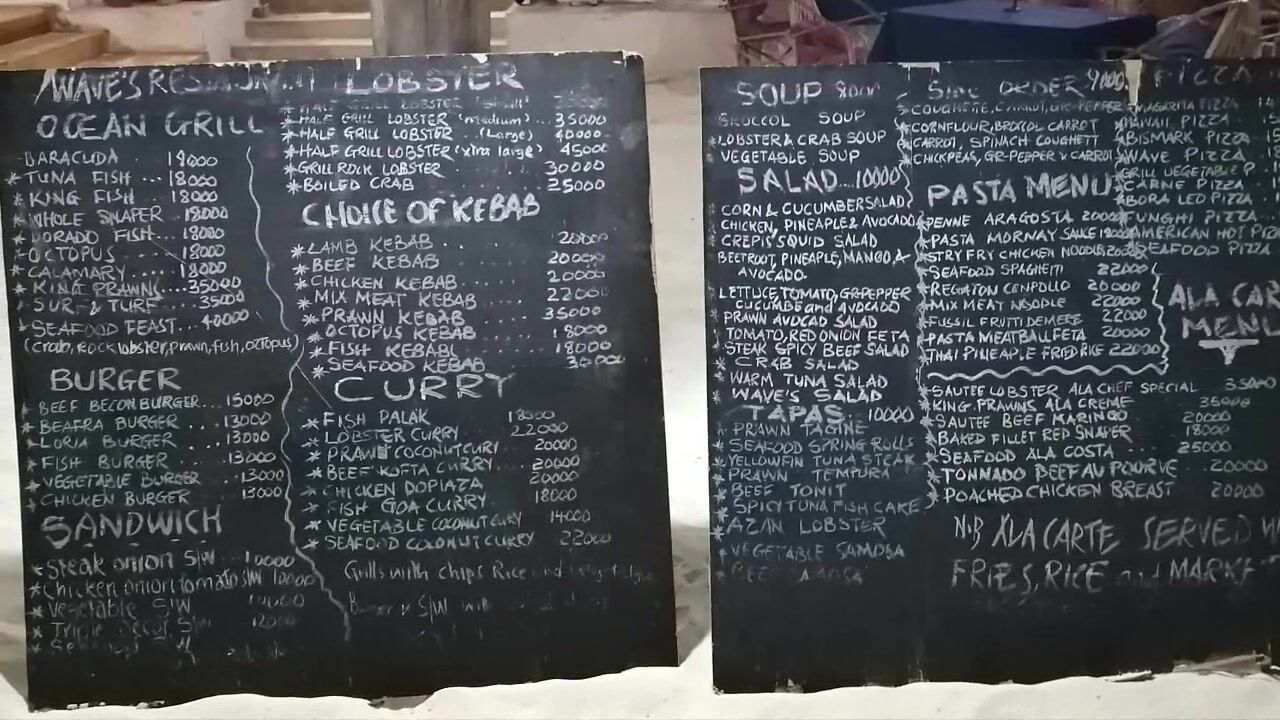 WAVE'S
OCEAN GRILL
BARACUDA ... 18000
* TUNA FISH ... 18000
* KING FISH ... 18000
* WHOLE SNAPER .. 18000
* DORADO FISH .. 18000
* OCTOPUS ... 18000
* CALAMARY .... 18000
* KING PRAWNS ... 35000
* SURF & TURF ... 35000
* SEAFOOD FEAST ... 40000
(Crab, rock lobster, prawn, fish, octopus)
BURGER
* BEEF BECON BURGER ... 15000
* BEAFRA BURGER ... 13000
* LORIA BURGER ... 13000
* FISH BURGER ... 13000
* VEGETABLE BURGER .. 13000
* CHICKEN BURGER 13000
SANDWICH
* Steak onion S/W .. 10000
* Chicken onion tomato S/W 10000
* Vegetable S/W
* Triple
LOBSTER
* HALF GRILL LOBSTER
* HALF GRILL LOBSTER (medium) ... 35000
* HALF GRILL LOBSTER ... (Large) 40000
* HALF GRILL LOBSTER (xtra large) 45000
* GRILL ROCK LOBSTER 30000
* BOILED CRAB 25000
CHOICE OF KEBAB
* LAMB KEBAB 20000
* BEEF KEBAB 20000
* CHICKEN KEBAB 20000
* MIX MEAT KEBAB 22000
* PRAWN KEBAB 35000
* OCTOPUS KEBAB 18000
* FISH KEBABL 18000
* SEAFOOD KEBAB 30000
CURRY
* FISH PALAK 18000
* LOBSTER CURRY 22000
* PRAWN COCONUT CURY 20000
* BEEF KOFTA CURRY 20000
* CHICKEN DOPIAZA 20000
* FISH GOA CURRY 18000
* VEGETABLE COCONUT CURY 14000
* SEAFOOD COLONUT CURRY 22000
Grills with chips Rice and
SOUP 8000
BROCCOL SOUP
* LOBSTER & CRAB SOUP
VEGETABLE SOUP
SALAD ... 10000
CORN & CUCUMBER SALAD
CHICKEN, PINEAPLE & AVOCADO
CREPIS SQUID SALAD
BEETROOT, PINEAPLE, MANGO &
AVOCADO.
LETTUCE, TOMATO, GR-PEPPER
CUCUMBE and AVOCADO
PRAWN AVOCAD SALAD
TOMATO, RED ONION FETA
STEAK SPICY BEEF SALAD
* CRAB SALAD
* WARM TUNA SALAD
* WAVE'S SALAD
TAPAS 10000
* PRAWN TAGINE
* SEAFOOD SPRING ROLLS
* YELLOWFIN TUNA STEAK
* PRAWN TEMPURA
* BEEF TONIT
* SPICY TUNA FISH CAKE
* AZAN LOBSTER
* VEGETABLE SAMOSA
* BEEF
SIDE ORDER 4000
COUGHETE, CARROT, GR-PEPPER
* CORNFLOUR, BROCOL CARROT
* CARROT, SPINACH COUGHETT
CHICKPEAS, GR-PEPPER & CARROT
PASTA MENU
* PENNE ARAGOSTA 20000
* PASTA MORNAY SAUCE
* STRY FRY CHICKEN NOODLS 20000
* SEAFOOD SPAGHETTI 22000
* REGATON CONPOLLO 20000
* MIX MEAT NOODLE 22000
* FUSSIL FRUTTI DEMERE 22000
* PASTA MEATBALL FETA 20000
* THAI PINEAPLE FRIED RICE 22000
PIZZA
* MAGERITA PIZZA
* HAWAII PIZZA
* BISMARK PIZZA
* WAVE PIZZA
* GRILL VEGETABLE P
* CARNE PIZZA
* BORA LEO PIZZA
* FUNGHI PIZZA
* AMERICAN HOT PIZZ
* SEAFOOD PIZZA
ALA CAR
MENU
* SAUTEE LOBSTER ALA CHEF SPECIAL 35000
* KING PRAWNS ALA CREME 35000
* SAUTEE BEEF MARINGO 20000
* BAKED FILLET RED SNAPER 18000
* SEAFOOD ALA COSTA 25000
* TONNADO BEEF AU POURVE 20000
* POACHED CHICKEN BREAST 20000
N:B ALA CARTE SERVED
FRIES, RICE and MARKE